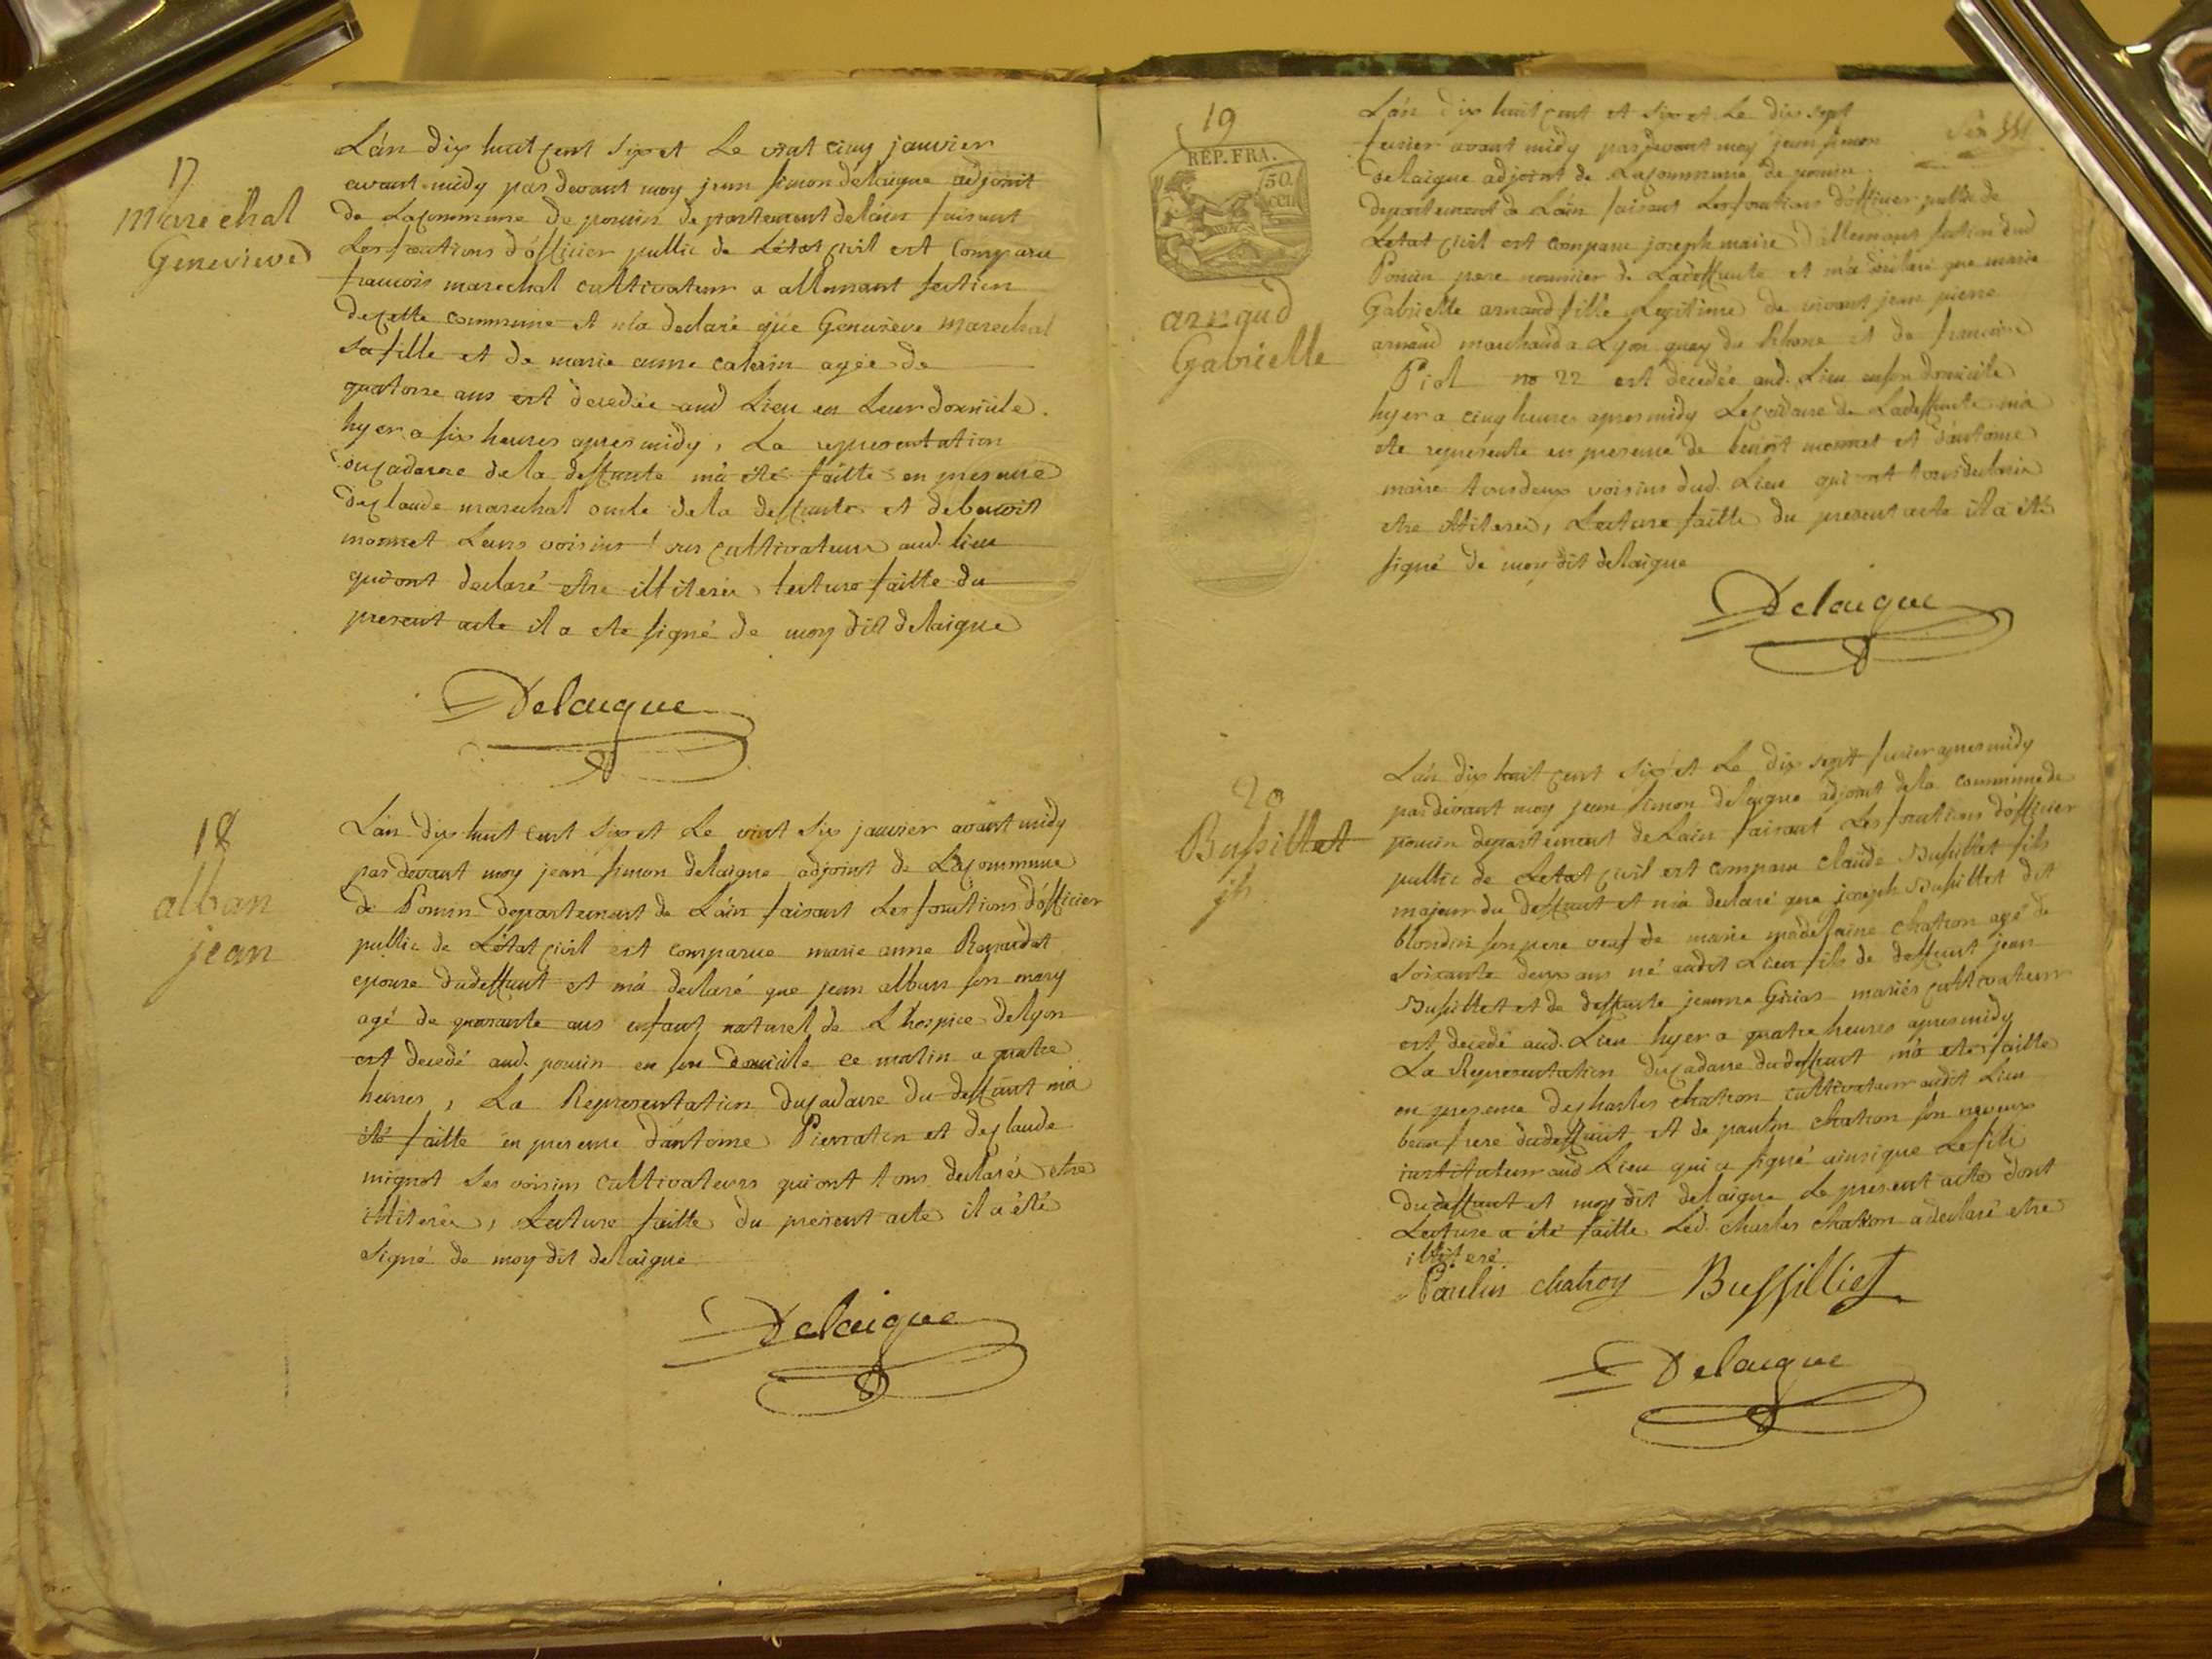 17
marechal
Genevieve
L'án dix huit cent six et Le vint cinq janvier
avant midy pardevant moy jean simon delaigue adjoint
de La commune de poncin departement de láin faisant
Les fonctions d'officier public de L'état civil est comparu
francois marechal cultivateur a allemant section
de cette commune et m'a declaré que Genevieve marechal
sa fille et de marie anne catarin agée de
quatorse ans est decedée aud Lieu en Leur domicile
hyer a six heures apres midy, La representation
du cadavre de la deffunte m'a été faitte en presence
de claude marechal oncle de la deffunte et de benoit
monnet Leurs voisins tous cultivateurs aud. lieu
qui ont declaré etre illiterés lecture faitte du
present acte il a ete signé de moy dit delaigue
Delaigue
18
alban
jean
L'án dix huit cent six et Le vint six janvier avant midy
pardevant moy jean simon delaigue adjoint de La commune
de Poncin departement de L'áin faisant Les fonctions d'officier
public de L'état civil est comparue marie anne
epouse du deffunt et m'á declaré que jean alban son mary
agé de quarante ans enfant naturel de L'hospice de lyon
est decedé aud. poncin en son domicile ce matin a quatre
heures, La Representation du cadavre du deffunt m'a
été faitte en presence d'antoine Pierratin et de claude
mignot Ses voisins cultivateurs qui ont tous declarés etre
illiterés, Lecture faitte du présent acte il a été
signé de moy dit delaigue
Delaigue
19
REP. FRA.
50.
CEN
arnaud
Gabrielle
L'án dix huit cent et six et Le dix sept
fevrier avant midy pardevant moy jean simon
delaigue adjoint de La commune de poncin
departement de L'áin faisant Les fonctions d'officier public de
L'etat civil est comparu joseph maire d'allemant section dud
Poncin pere nourricier de La deffunte et m'a déclaré que marie
Gabrielle arnaud fille Legitime de vivant jean pierre
arnaud marchand a Lyon quay du Rhone et de francoise
Piot no 22 est decedée aud. Lieu en son domicile
hyer a cinq heures apres midy Le cadavre de La deffunte m'a
ete representé en presence de benoit monnet et d'antoine
maire tous deux voisins dud. Lieu qui ont tous declaré
etre illiterés, Lecture faitte du present acte il a été
signé de moy dit delaigue
Delaigue
20
Bussillet
jh
L'án dix huit cent six et Le dix sept fevrier apres midy
pardevant moy jean simon delaigue adjoint de la commune de
poncin departement de Láin faisant Les fonctions d'officier
public de Letat civil est comparu claude Bussillet fils
majeur du deffunt et m'á declaré que joseph Bussillet dit
blondin son pere veuf de marie madelaine chatron agé de
soixante deux ans né audit Lieu fils de deffunt jean
Bussillet et de deffunte jeanne Girias mariés cultivateurs
est decedé aud. Lieu hyer a quatre heures apres midy
La Representation du cadavre du deffunt m'a ete faitte
en presence de charles chatron cultivateur audit Lieu
beau frere du deffunt et de paulin chatron son neveux
institateur aud Lieu qui a signé ainsi que Le fils
du deffunt et moy dit delaigue Le present acte dont
Lecture a été faitte Led. charles chatron a declaré etre
illiteré
Paulin chatroy Bussilliet
Delaigue